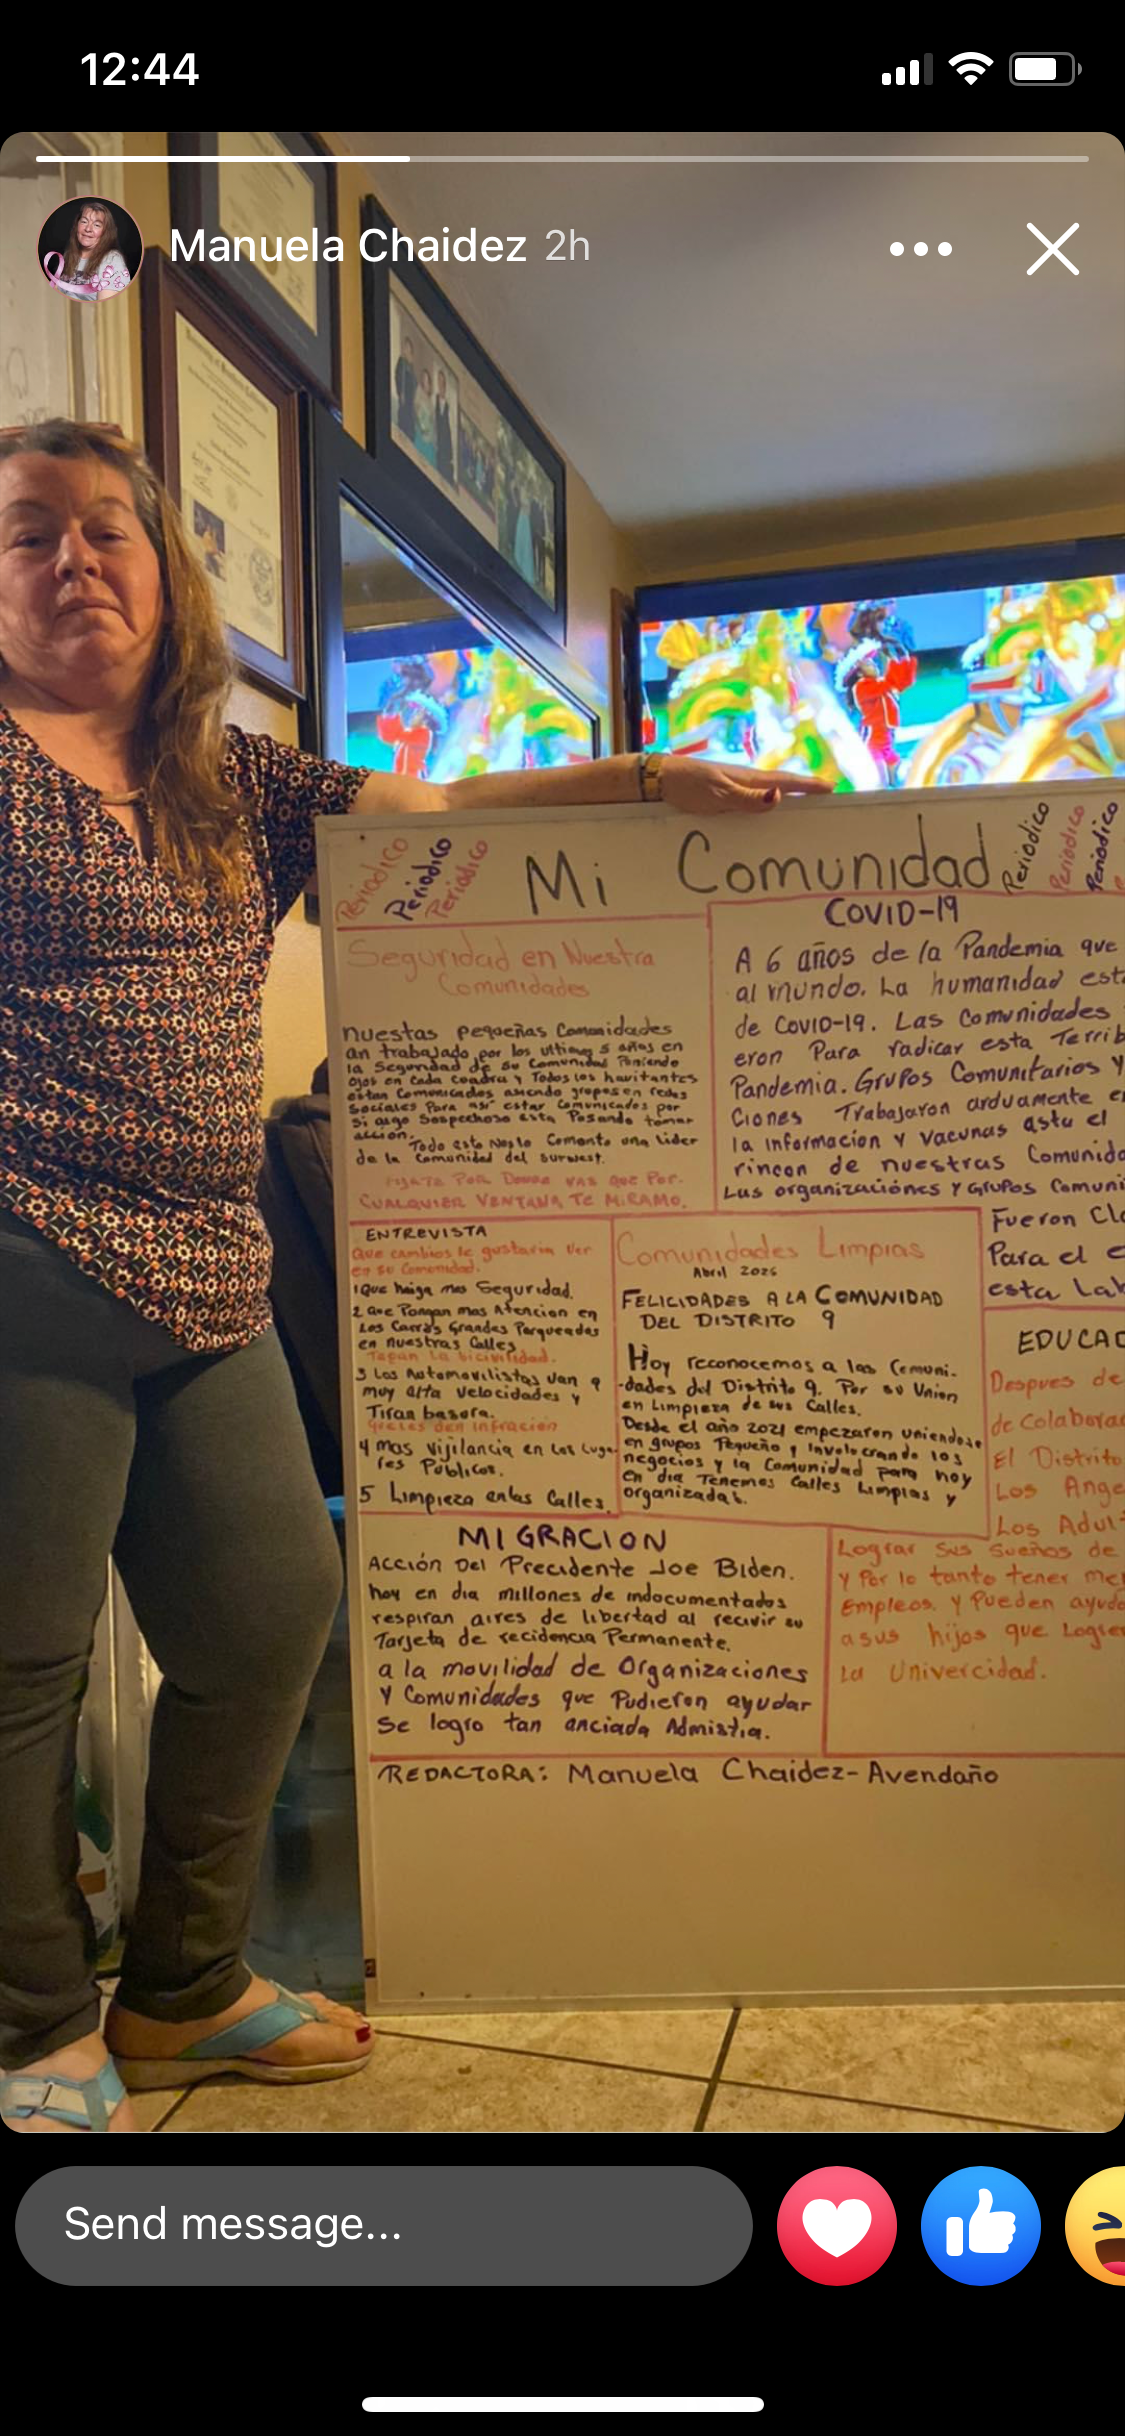 12:44
Manuela Chaidez 2h
Periodico
Periódico
Periodico
Mi Comunidad
Periodico
Periodico
Periodico
Seguridad en Nuestra
Comunidades
nuestas pequeñas Comonidades
an trabajado por los ultimos 5 años en
la Seguridad de su Comunidad Poniendo
ojos en Cada Cuadra y Todos los havitantes
estan Comonicados asiendo gropos en redes
Sociales Para asi estar Comonicados por
Si algo Sospechoso esta Pasando tomar
acción.
Todo esto Nos lo Comento una Lider
de la Comunidad del Surwest.
FIJATE POR DONDE VAS QUE POR
CUALQUIER VENTANA TE MIRAMO.
COVID-19
A 6 años de la Pandemia que
al mundo. La humanidad est
de COVID-19. Las Comunidades
eron Para radicar esta Terrib
Pandemia. Grupos Comunitarios y
Ciones Trabajaron arduamente e
la informacion y vacunas asta el
rincon de nuestras Comunid
Las organizaciónes y Grupos Comuni
Fueron Cl
Para el
esta Lab
ENTREVISTA
Que cambios le gustaria ver
en su Comonidad.
1 Que haiga mas Seguridad.
2 Que Pongan mas Atencion en
Los Carros Grandes Parqueados
en nuestras Calles
Tapan la
3 Los Automovilistas van a
muy alta velocidades y
Tiran basora.
den infración
4 mas vijilancia en Los Luga-
res Públicos.
5 Limpieza enlas Calles.
Comunidades Limpias
Abril 2026
FELICIDADES A LA COMUNIDAD
DEL DISTRITO 9
Hoy reconocemos a las Comuni-
-dades del Distrito 9. Por su Union
en Limpieza de sus Calles.
Desde el año 2021 empezaron uniendose
en grupos Pequeño y Involocrando los
negocios y la Comunidad para hoy
en dia Tenemos Calles Limpias y
organizadas.
EDUCAC
Despues de
de Colabora
El Distrito
Los Ange
Los Adult
Lograr Sus Sueños de
y Por lo tanto tener me
Empleos. y Pueden ayud
asus hijos que Logre
la Univercidad.
MIGRACION
Acción Del Precidente Joe Biden.
hoy en dia millones de indocumentados
respiran aires de libertad al recivir su
Tarjeta de recidencia Permanente.
a la movilidad de Organizaciones
y Comunidades que Pudieron ayudar
Se logro tan anciada Admistia.
REDACTORA: Manuela Chaidez-Avendaño
Send message...